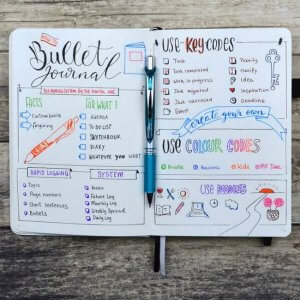 HOW TO
Bullet
Journal
THE ANALOG SYSTEM FOR THE DIGITAL AGE
FACTS
Customizable
Forgiving
FOR WHAT?
AGENDA
TO DO LIST
SKETCHBOOK
DIARY
WHATEVER YOU WANT
RAPID LOGGING
Topic
Page numbers
Short sentences
Bullets
SYSTEM
Index
Future Log
Monthly Log
Weekly Spread
Daily Log
USE KEY CODES
Task
Task completed
Work in progress
Task migrated
Task canceled
Event
Priority
Clarify
Idea
Inspiration
Deadline
Create your own
USE COLOUR CODES
Private
Business
Kids
Me Time
USE DOODLES